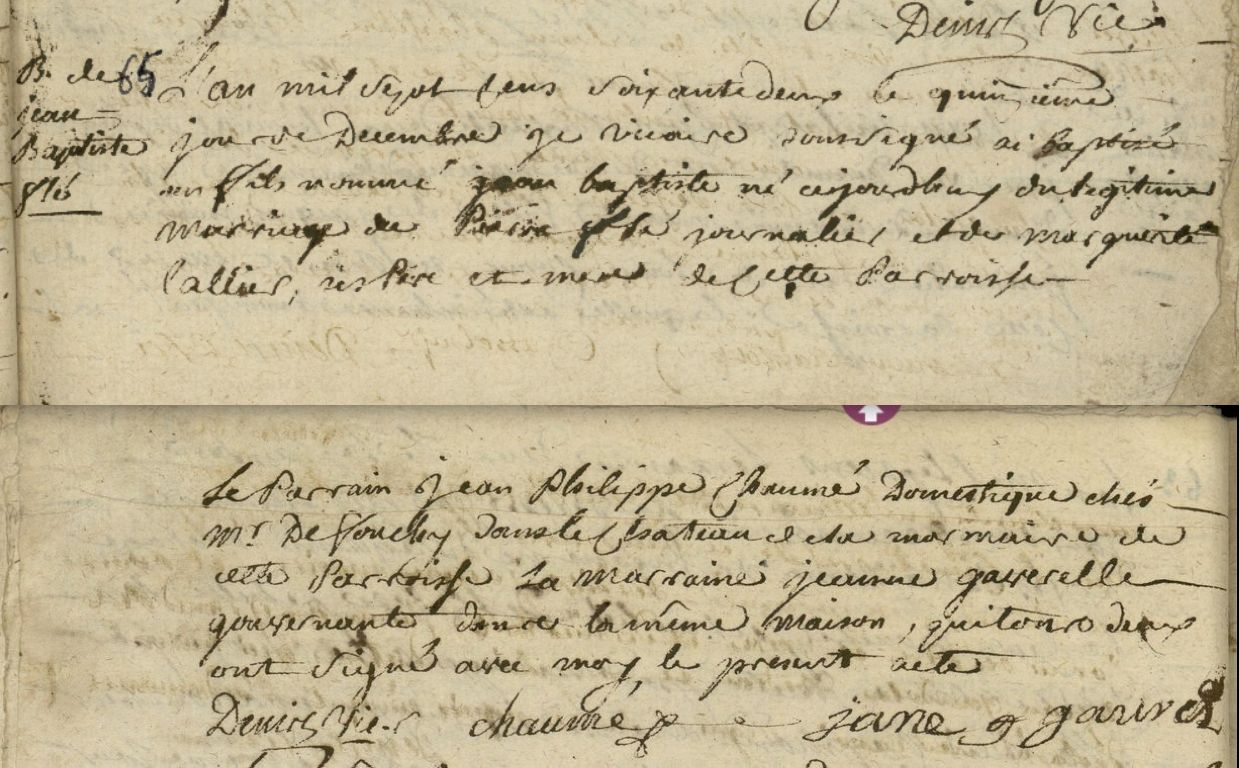 Denis Vic.
B. de 65
jean
Baptiste
L'an mil Sept Cens Soixante deux le quinzieme
jour de Decembre je vicaire soussigné ai baptisé
un fils nommé jean baptiste né cejourdhuy du legitime
marriage de Pierre journalier et de marguerite
Callier, ses Pere et mere de Cette Parroisse
Le Parrain jean Philippe Chaumé Domestique chés
Mr. De fouchy dans le Chateau de la mormaire de
cette Parroisse La marraine jeanne gaverelle
gouvernante dans la même maison, qui tous deux
ont signé avec moy le present acte
Denis Vic. chaumé jane gauvel